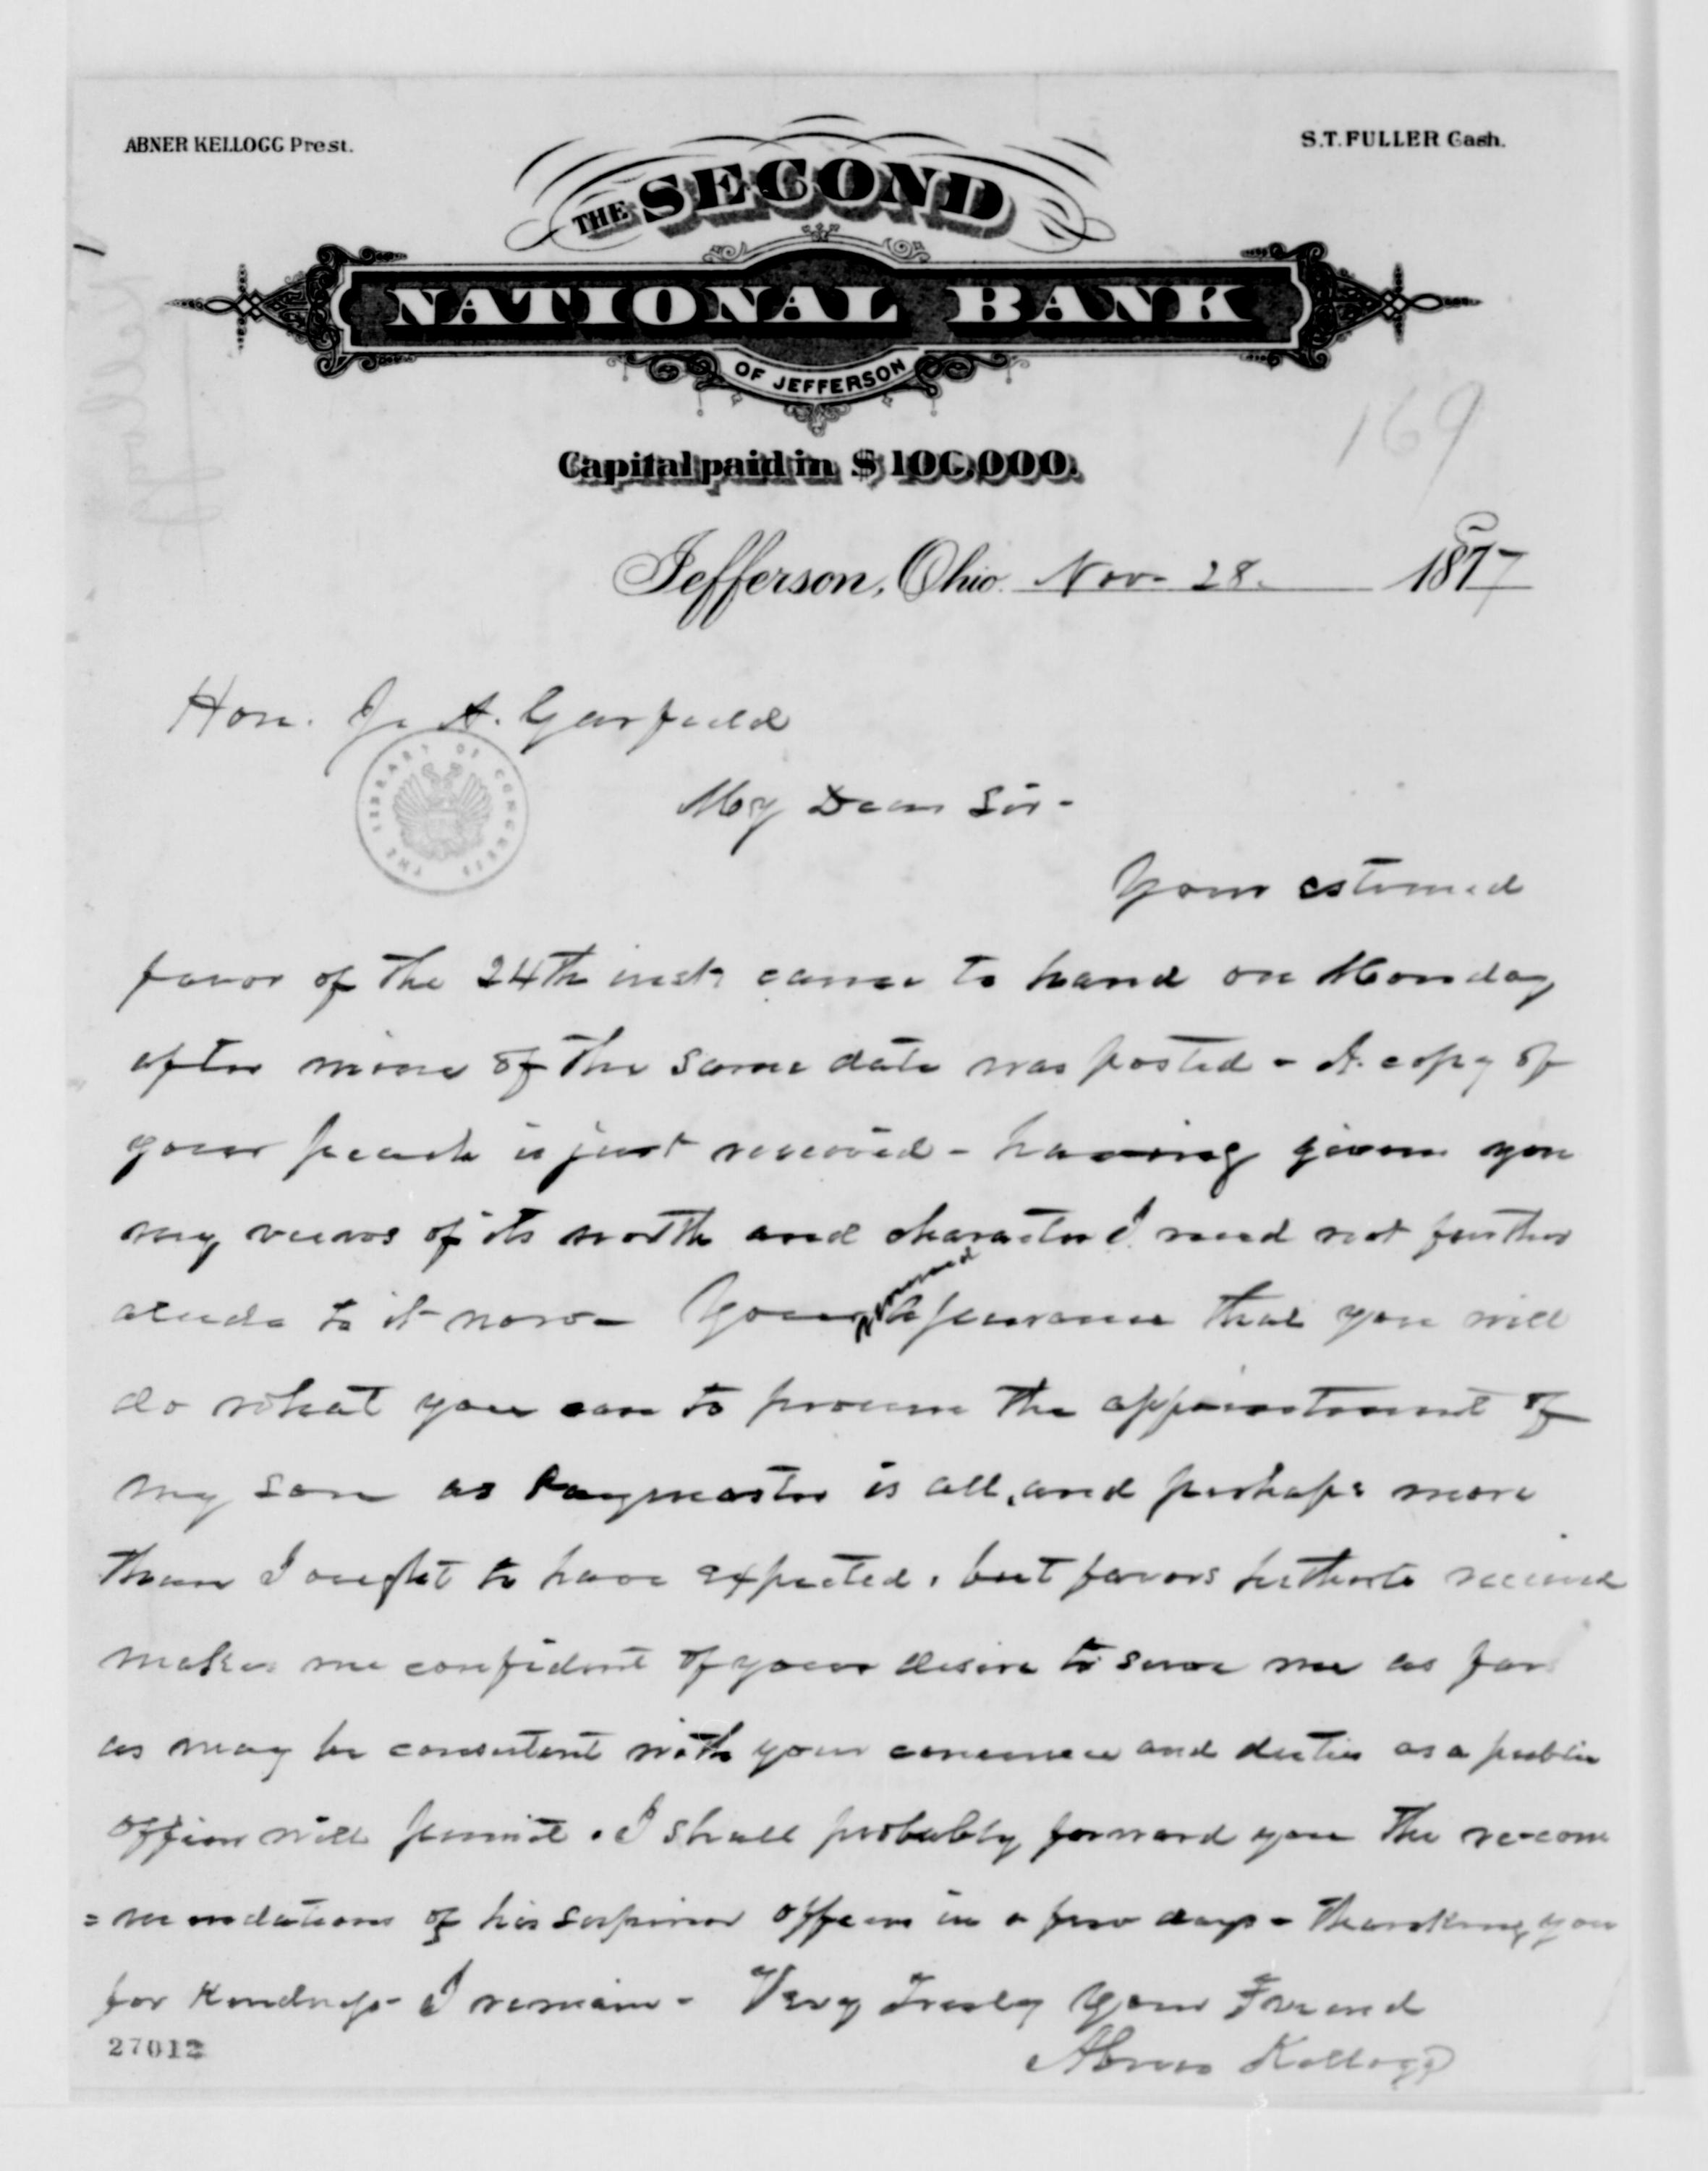 ABNER KELLOGG Prest.
S.T. FULLER Cash.
THE SECOND
NATIONAL BANK
OF JEFFERSON
Capital paid in $100,000.
169
Jefferson, Ohio. Nov- 28. 1877
Hon. J. A. Garfield
THE LIBRARY OF CONGRESS
My Dear Sir-
Your esteemed
favor of the 24th inst came to hand on Monday
after mine of the same date was posted - A copy of
your is just received - having given you
my views of its worth and character I need not further
alude to it now - Your renewed assurance that you will
do what you can to procure the appointment of
my son as Paymaster is all, and perhaps more
than I ought to have expected, but favors hitherto received
makes me confident of your desire to serve me as far
as may be consistent with your and duties as a public
officer will permit. I shall probably forward you the recom
=mendations of his superior officers in a few days - thanking you
for kindness - I remain - Very Truly Your Friend
27012
Abner Kellogg